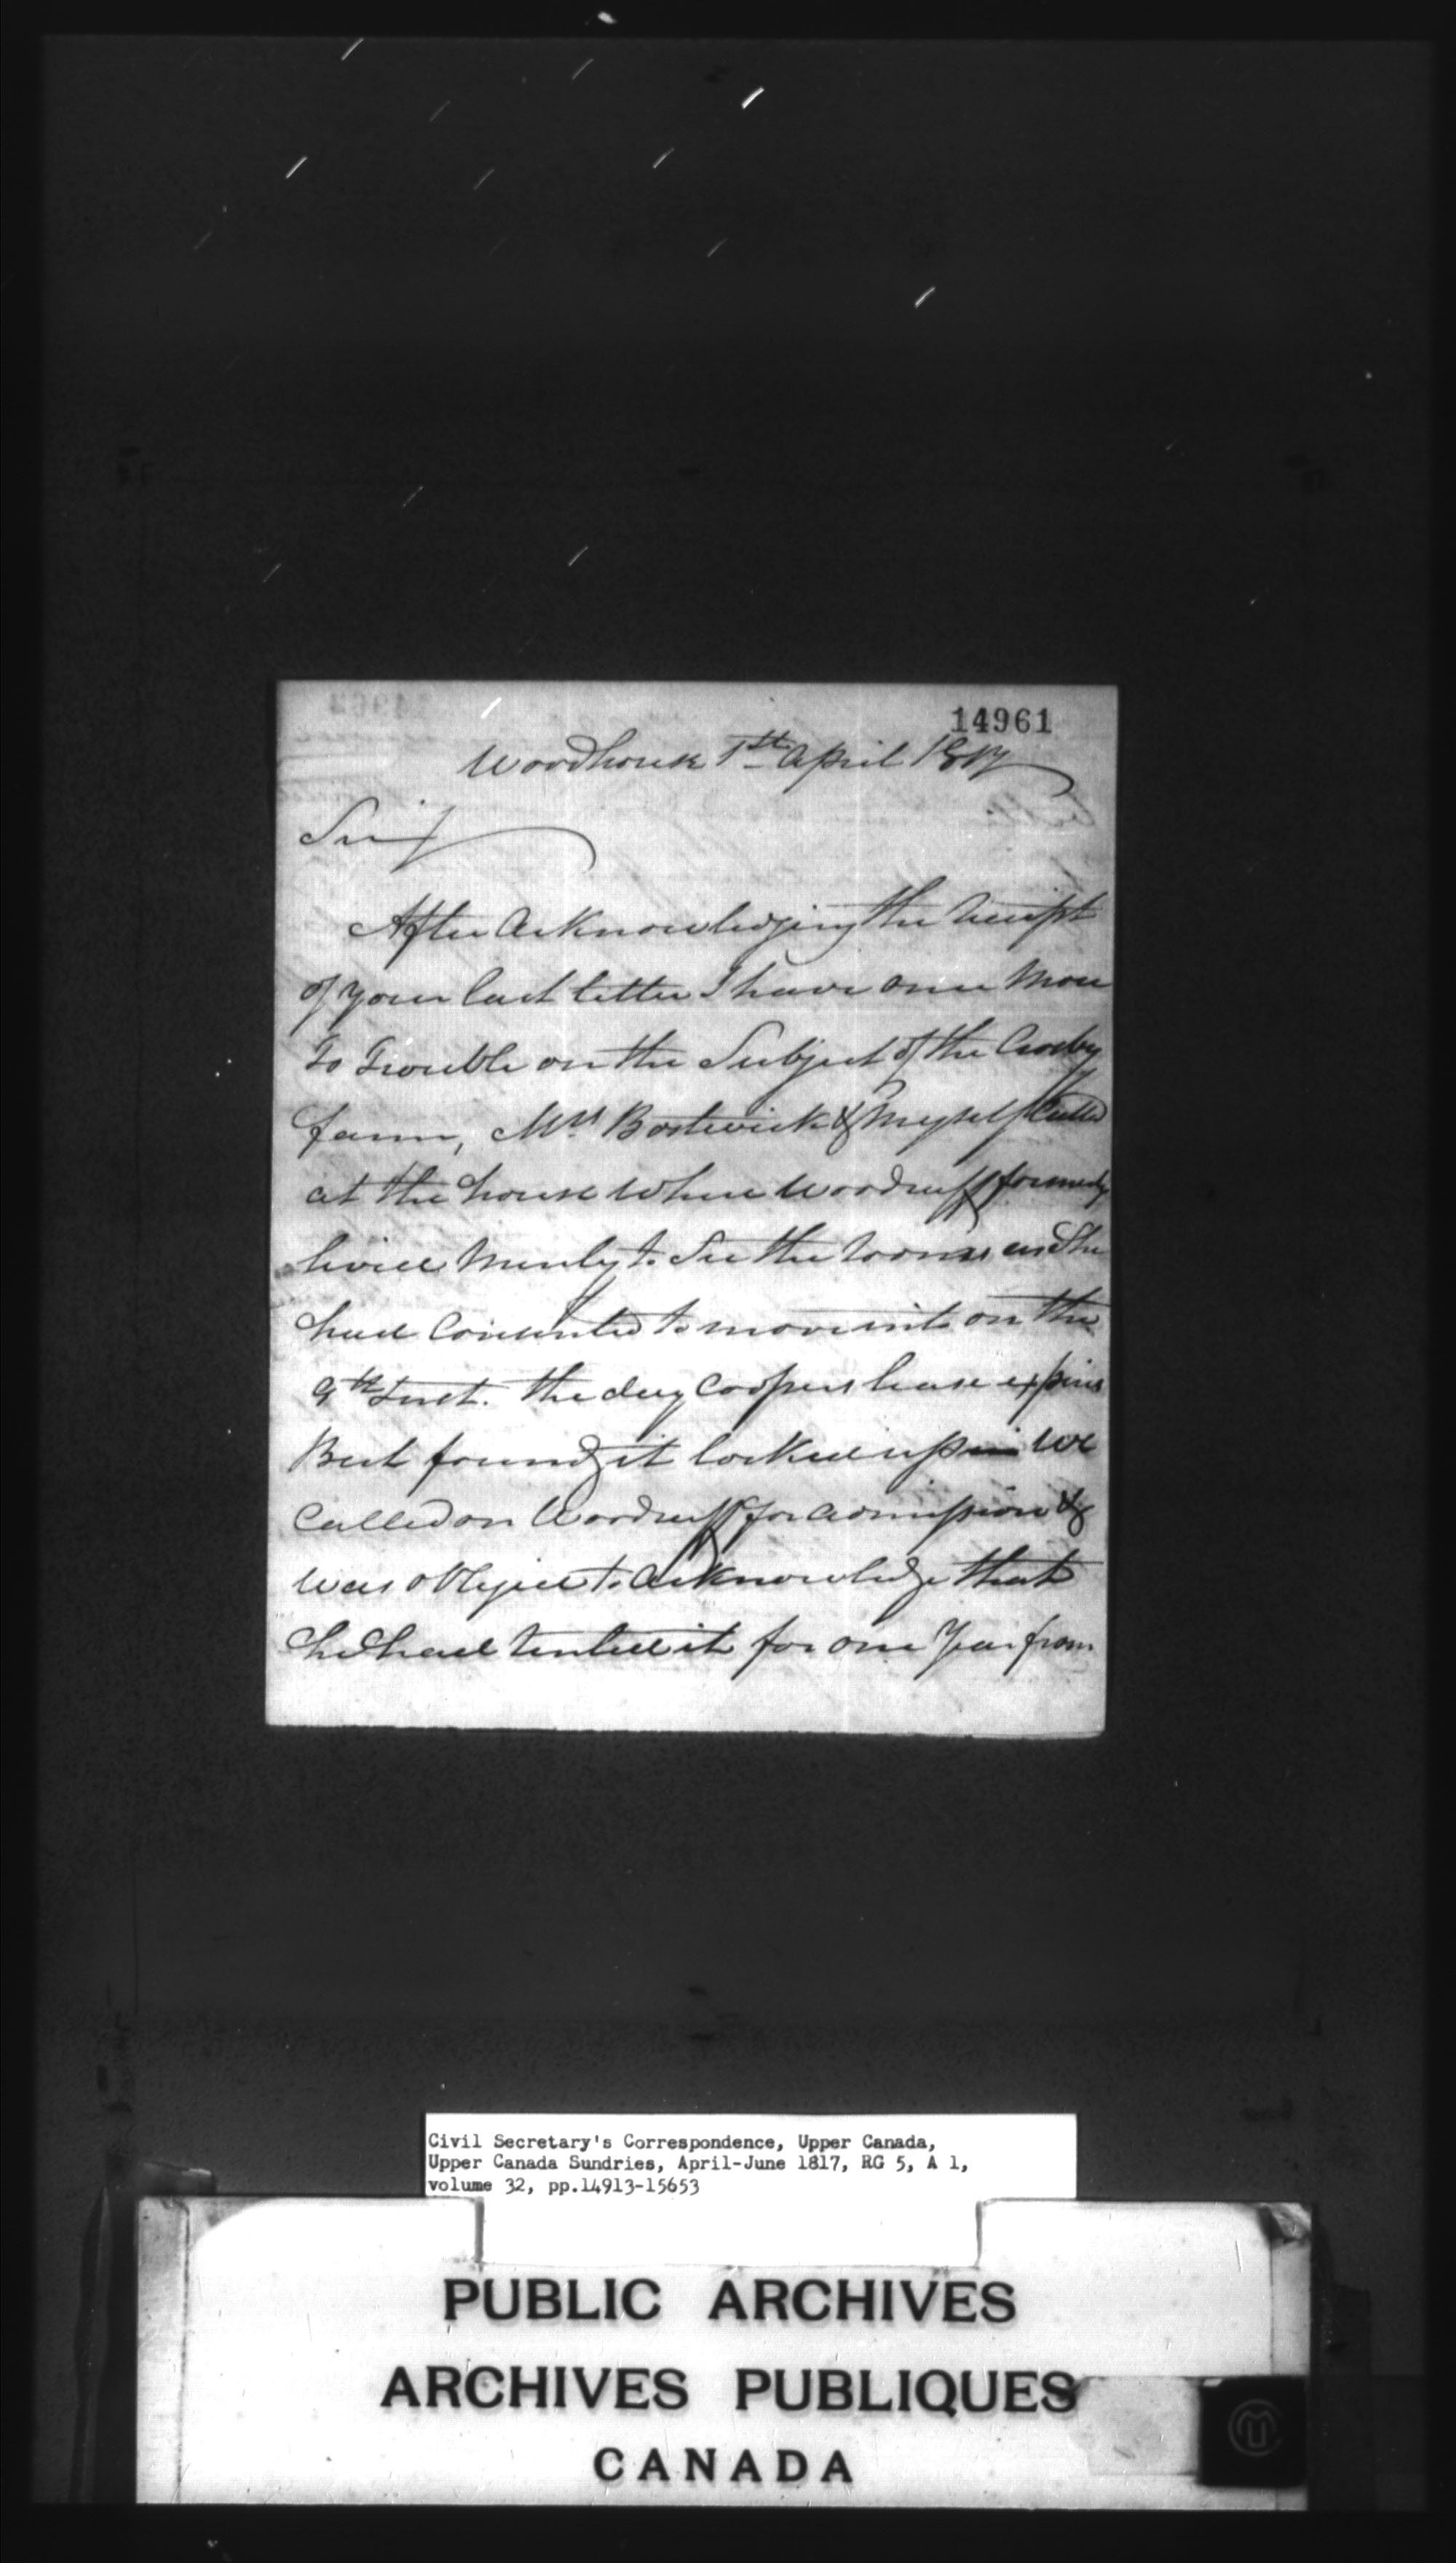 14961
Woodhouse 1st April 1817
Sir
After Acknowledging the Receipt
of your last letter I have once More
to Trouble on the Subject of the Crosby
farm, Mrs Bostwick & Myself Called
at the house Where Woodruff formerly
lived Merely to See the rooms as She
had Consented to move into on the
9th Inst. the day Coopers lease expires
But found it locked up We
Called on Woodruff for admission &
was obliged to Acknowledge that
he had rented it for one Year from
Civil Secretary's Correspondence, Upper Canada,
Upper Canada Sundries, April-June 1817, RG 5, A 1,
volume 32, pp.14913-15653
PUBLIC ARCHIVES
ARCHIVES PUBLIQUES
CANADA